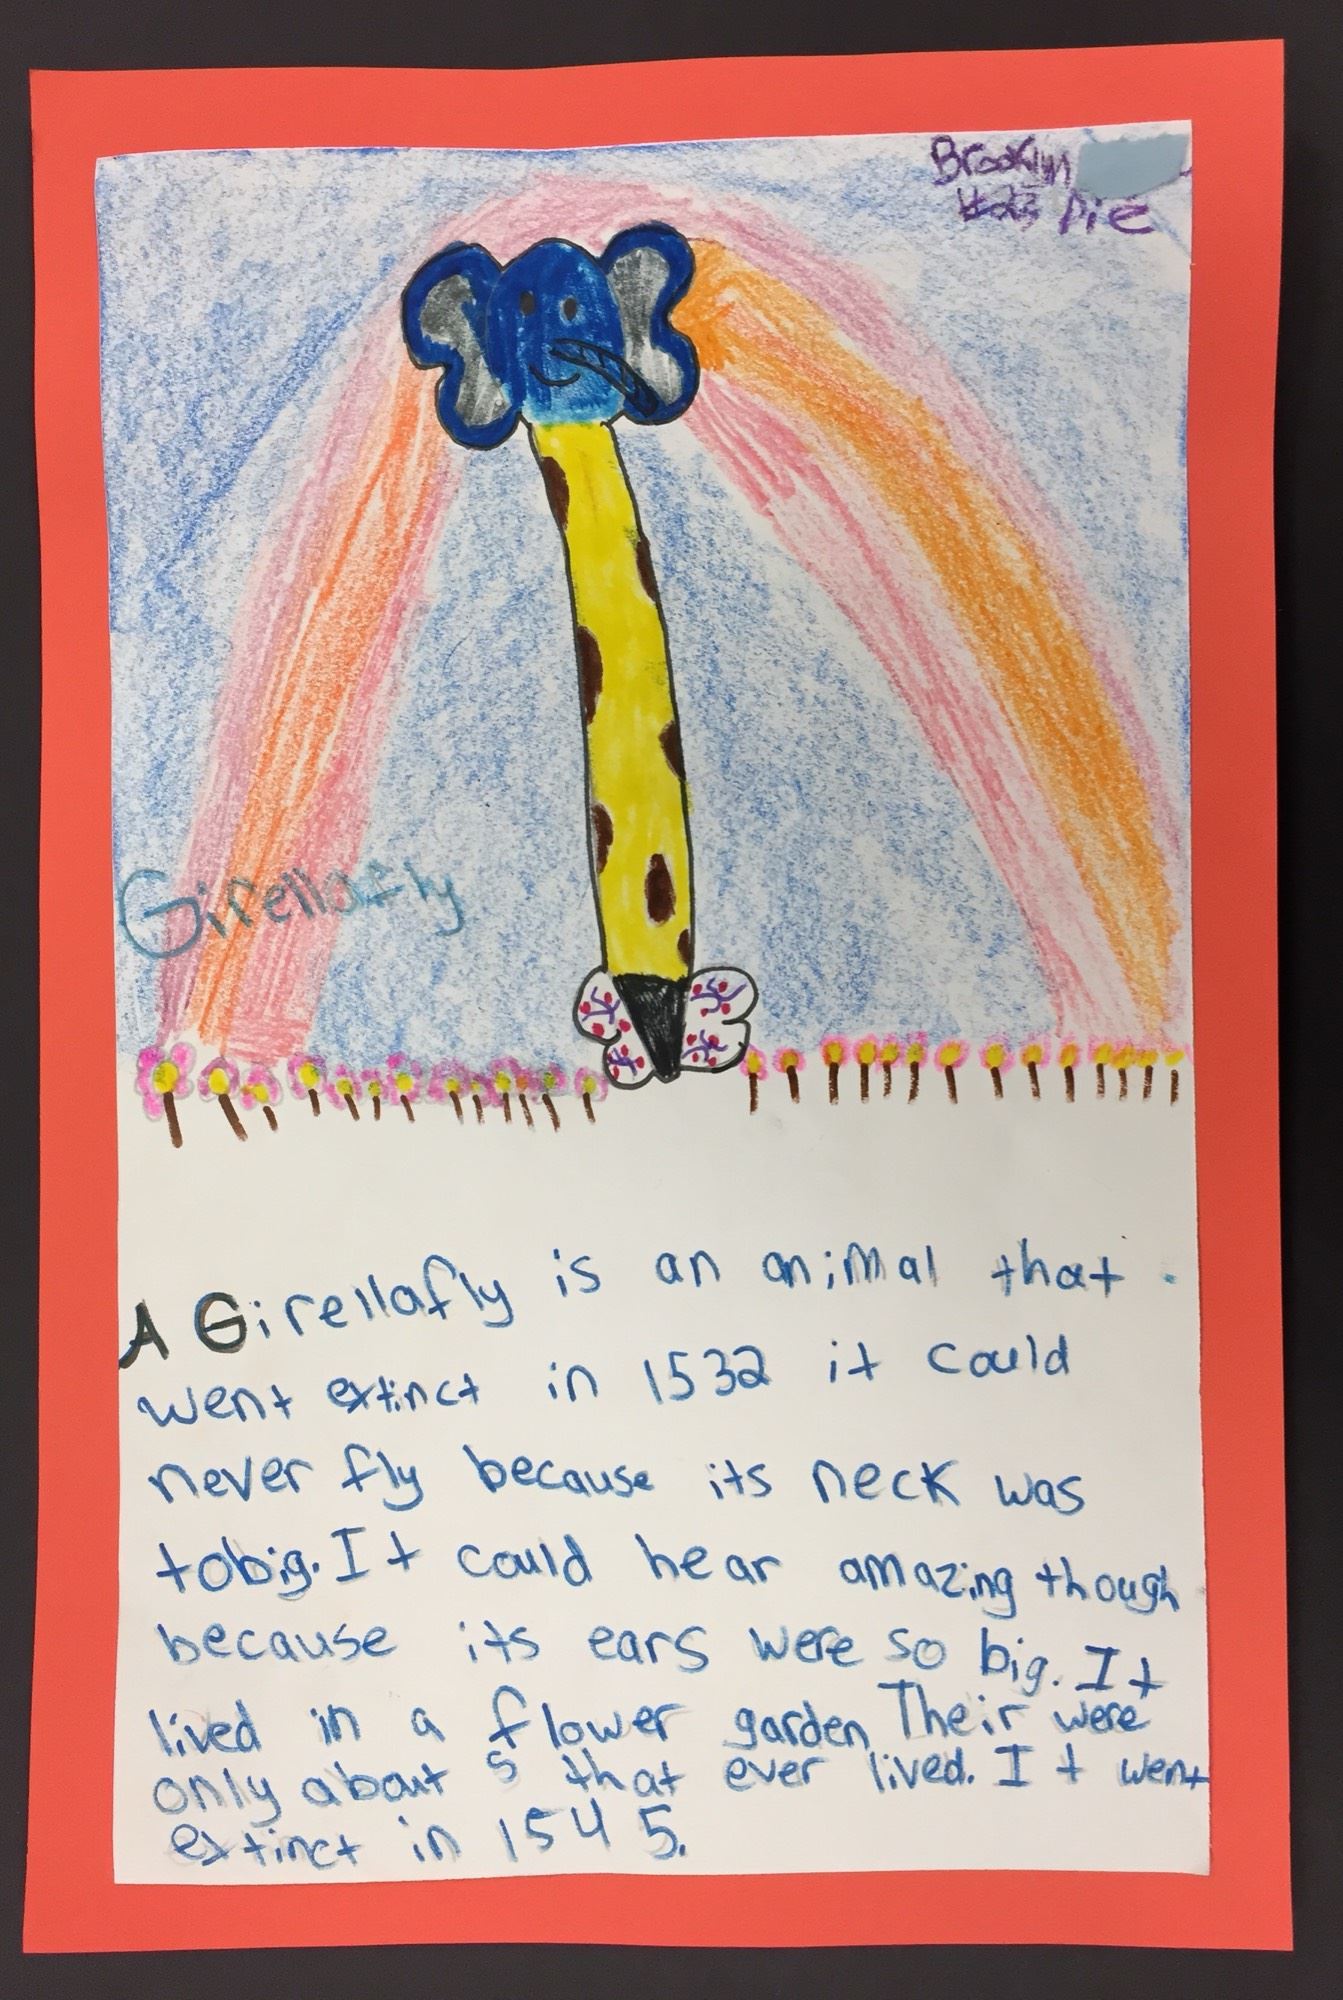 Brooklyn
Pie
Girellafly
A Girellafly is an animal that
went extinct in 1532 it could
never fly because its neck was
tobig. It could hear amazing though
because its ears were so big. It
lived in a flower garden Their were
only about 5 that ever lived. It went
extinct in 1545.